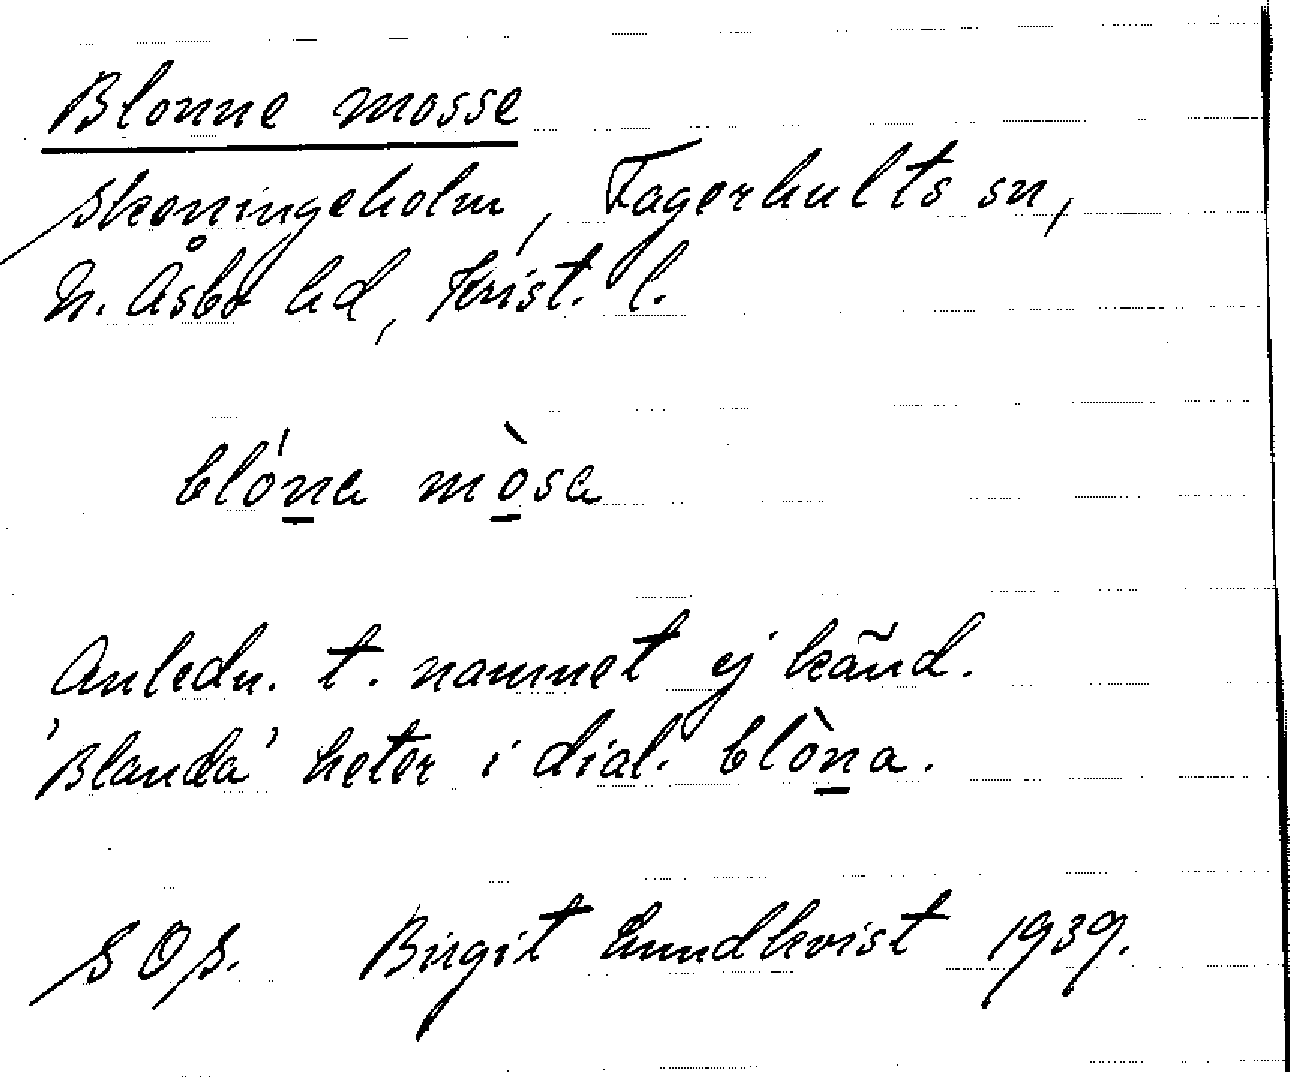 Blonne mosse
Skäningeholm, Fagerhults sn,
N. Åsbo hd, Krist. l.
blóna mòsa
Anledn. t. namnet ej känd.
'Blanda' heter i dial. blòna.
SOS. Birgit Lundkvist 1939.